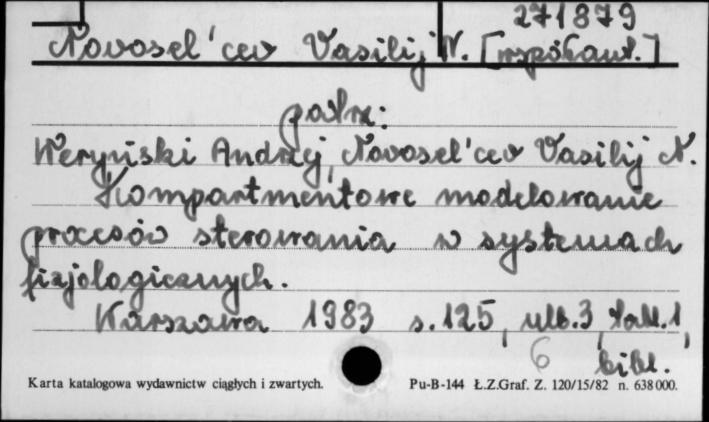 271879
Novosel'cev Vasilij N. [współaut.]
patrz:
Weryński Andrzej, Novosel'cev Vasilij N.
Kompartmentowe modelowanie
procesów sterowania w systemach
fizjologicznych.
Warszawa 1983 s. 125, ulb. 3, tabl. 1,
6 bibl.
Karta katalogowa wydawnictw ciągłych i zwartych. Pu-B-144 Ł.Z.Graf. Z. 120/15/82 n. 638000.